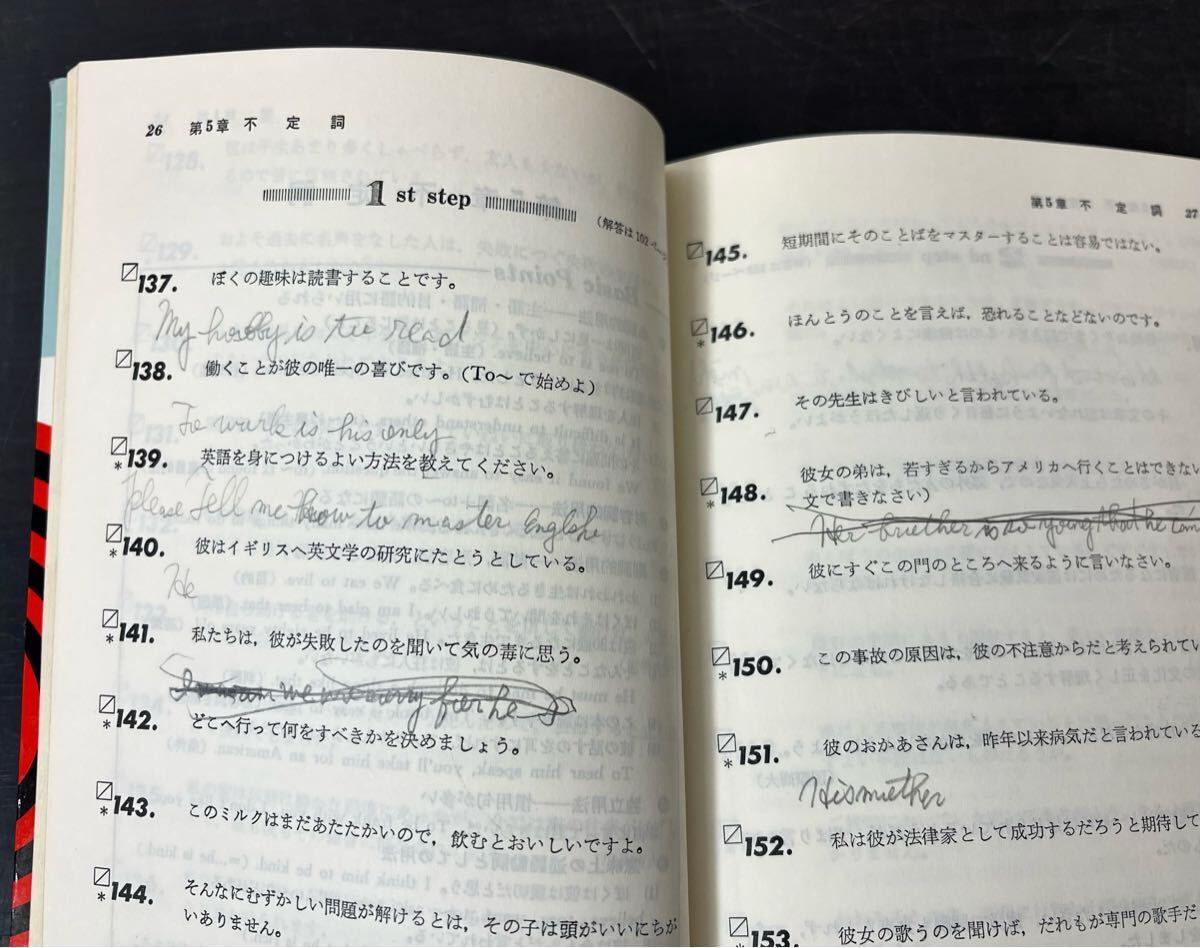 26 第5章 不定詞
1 st step
(解答は102ページ
137. ぼくの趣味は読書することです。
My hobby is to read
138. 働くことが彼の唯一の喜びです。(To～で始めよ)
To work is his only
*139. 英語を身につけるよい方法を教えてください。
please tell me how to master
*140. 彼はイギリスへ英文学の研究にたとうとしている。
He
*141. 私たちは，彼が失敗したのを聞いて気の毒に思う。
*142. どこへ行って何をすべきかを決めましょう。
*143. このミルクはまだあたたかいので，飲むとおいしいですよ。
*144. そんなにむずかしい問題が解けるとは，その子は頭がいいにちが
いありません。
第5章 不定詞 27
145. 短期間にそのことばをマスターすることは容易ではない。
*146. ほんとうのことを言えば，恐れることなどないのです。
147. その先生はきびしいと言われている。
*148. 彼女の弟は，若すぎるからアメリカへ行くことはできない
文で書きなさい)
Her brother is so young that he can
149. 彼にすぐこの門のところへ来るように言いなさい。
*150. この事故の原因は，彼の不注意からだと考えられてい
*151. 彼のおかあさんは，昨年以来病気だと言われている
His mother
152. 私は彼が法律家として成功するだろうと期待して
*153. 彼女の歌うのを聞けば，だれもが専門の歌手だ